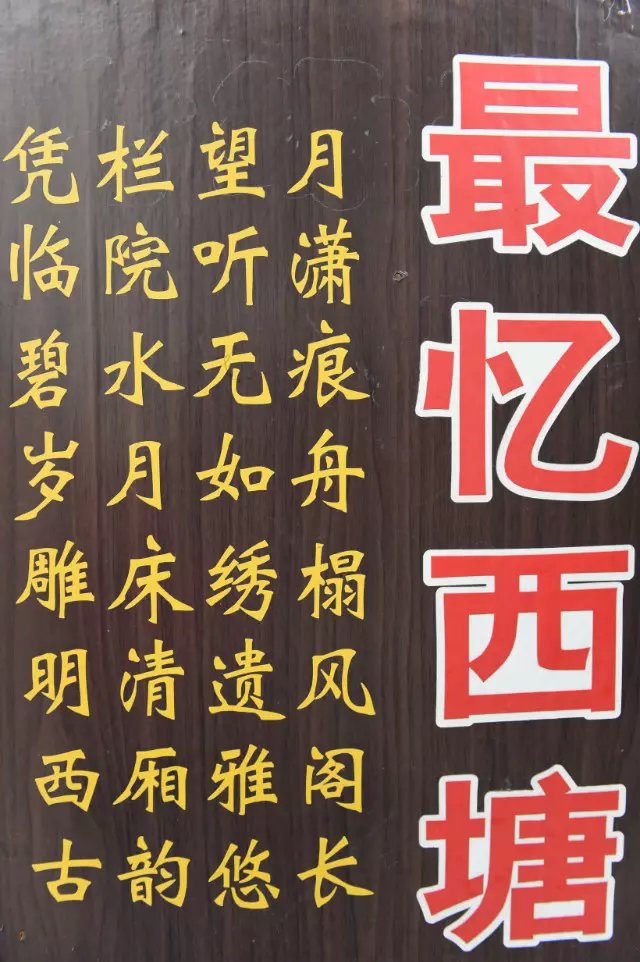 最忆西塘
凭栏望月
临院听潇
碧水无痕
岁月如舟
雕床绣榻
明清遗风
西厢雅阁
古韵悠长